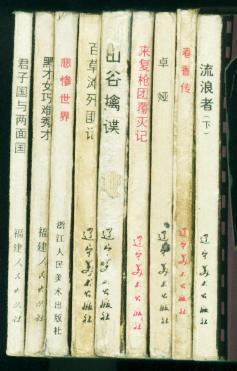 君子国与两面国
福建人民出版社
黑才女巧难秀才
福建人民出版社
悲惨世界
浙江人民美术出版社
百草滩歼围记
辽宁美术出版社
山谷擒谍
辽宁美术出版社
来复枪团覆灭记
辽宁美术出版社
卓娅
辽宁美术出版社
春香传
辽宁美术出版社
流浪者(下)
辽宁美术出版社